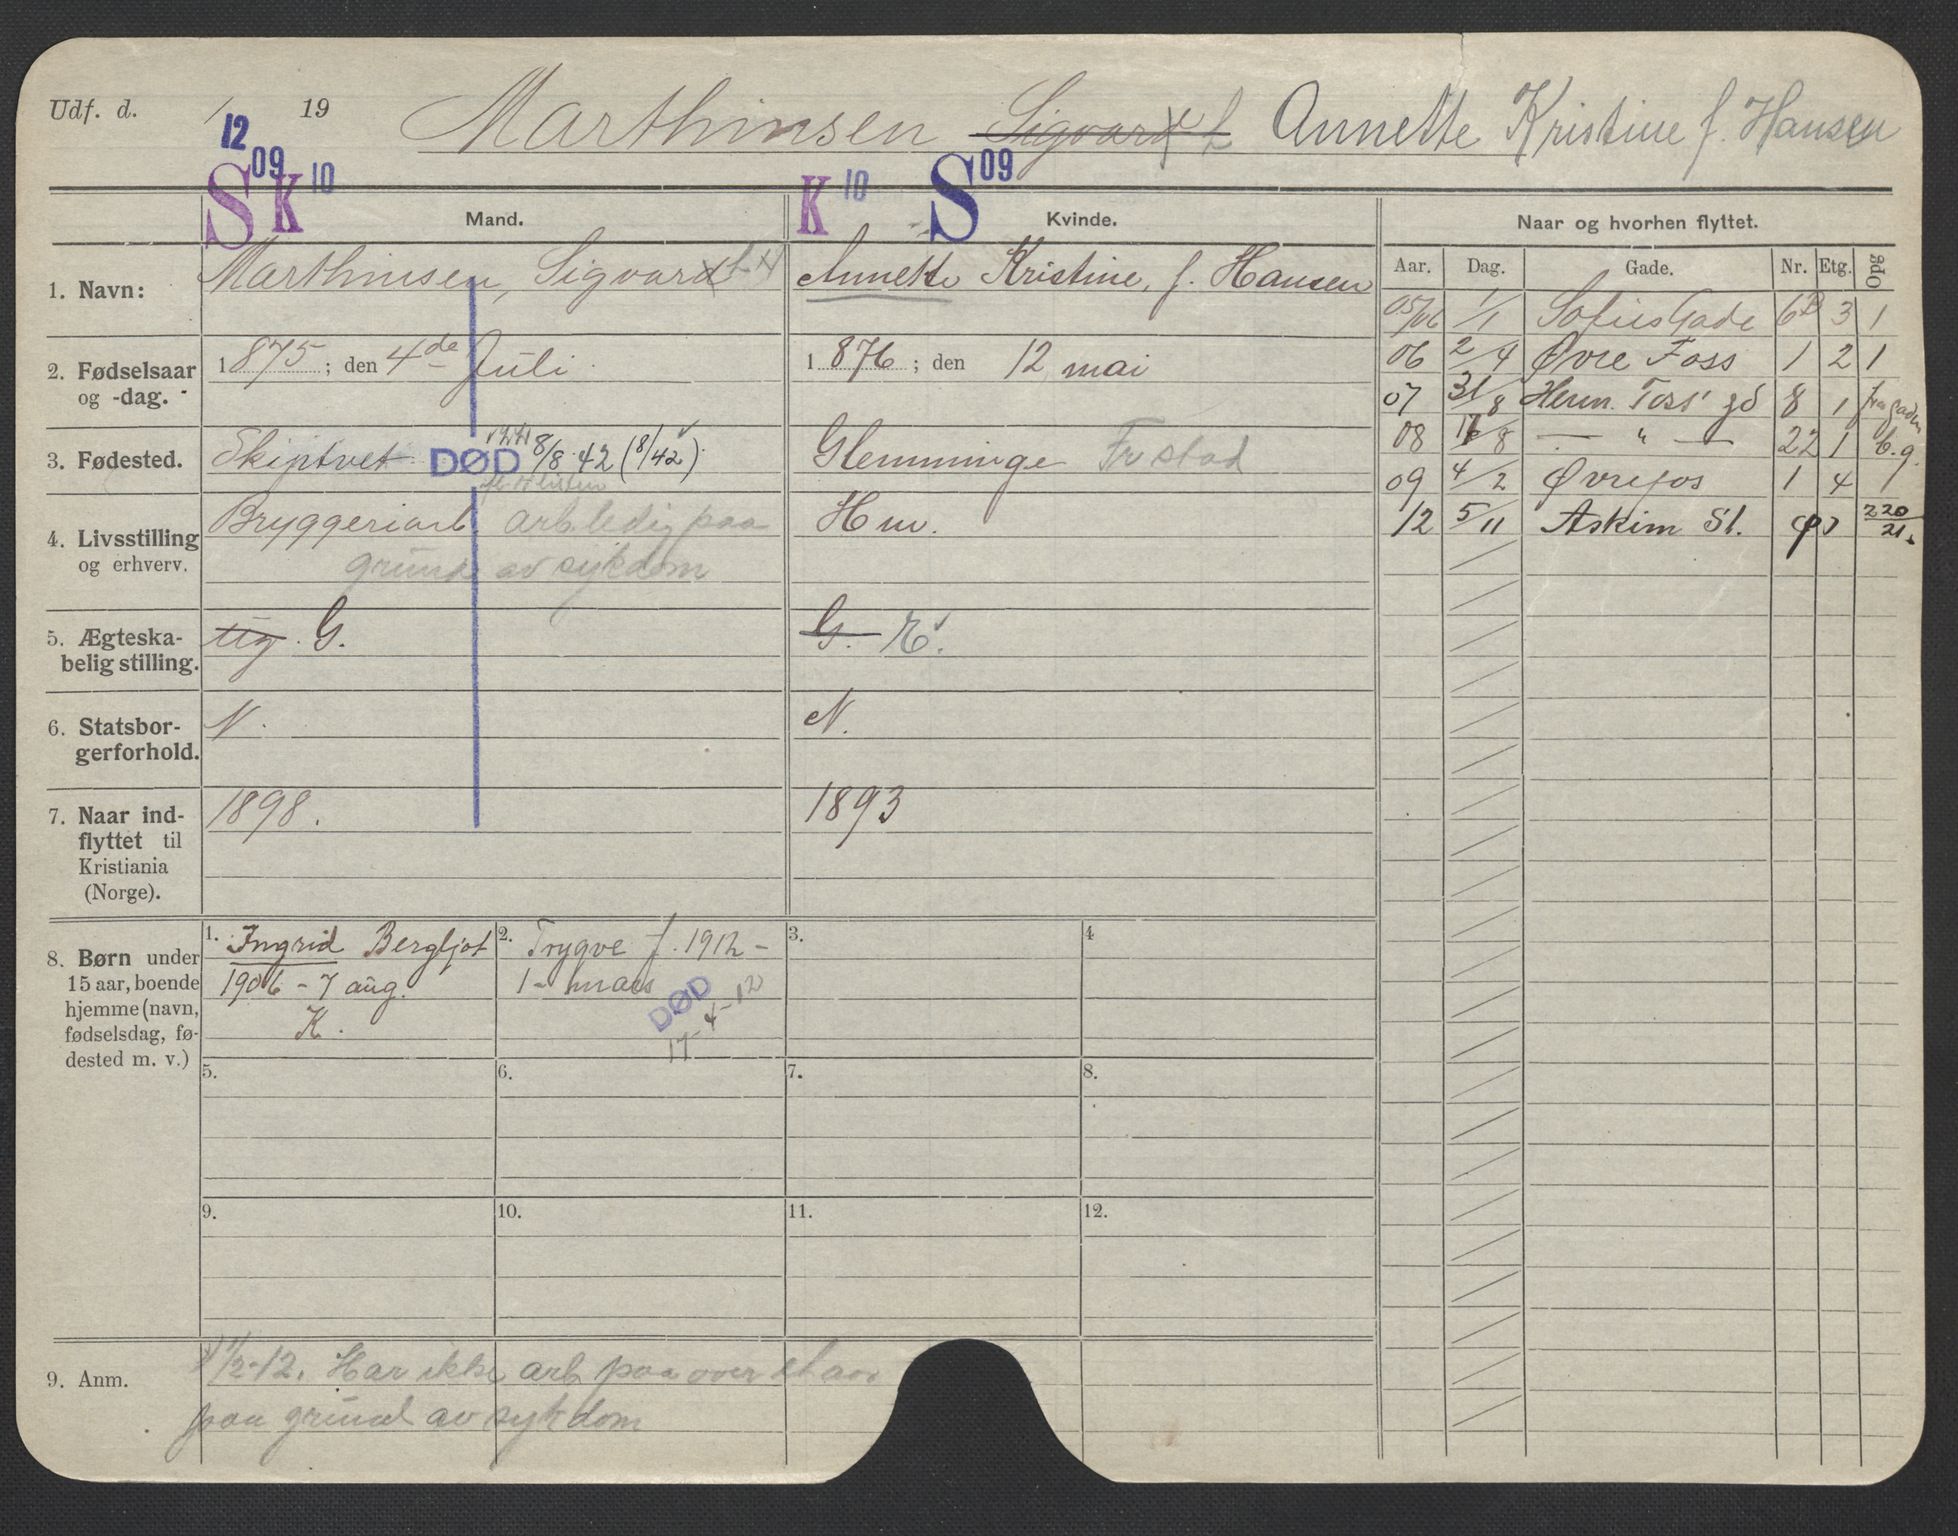 Udf. d. / 19 Marthinsen Sigvard Annette Kristine f. Hansen
12
S 09 K 10 K 10 S 09
Mand. Kvinde. Naar og hvorhen flyttet.
Aar. Dag. Gade. Nr. Etg. Opg
1. Navn: Marthinsen, Sigvard Annette Kristine, f. Hansen
05/06 1/1 Sofies Gade 6B 3 1
2. Fødselsaar og -dag. 1875; den 4de Juli 1876; den 12 mai
06 2/4 Øvre Foss 1 2 1
07 31/8 Herm. Foss' gd 8 1 fra gaden
3. Fødested. Skiptvet DØD 8/8 42 (8/42) Glemminge Frstad
08 17/8 — " — 22 1 b.g.
09 4/2 Øvrefos 1 4 1
4. Livsstilling og erhverv. Bryggeriarb. arbledig paa Hm.
grund av sykdom
12 5/11 Askim St. 220/21.
5. Ægteska-
belig stilling. ug. G. G. E.
6. Statsbor-
gerforhold. N. N.
7. Naar ind-
flyttet til
Kristiania
(Norge). 1898. 1893
8. Børn under
15 aar, boende
hjemme (navn,
fødselsdag, fø-
dested m. v.)
1. Ingrid Bergljot
1906 - 7 aug.
K.
2. Trygve f. 1912 -
1 - mars
DØD
17-4-12
3.
4
5.
6.
7.
8.
9.
10.
11.
12.
9. Anm. 1/2-12. Har ikke arb paa over
paa grund av sykdom